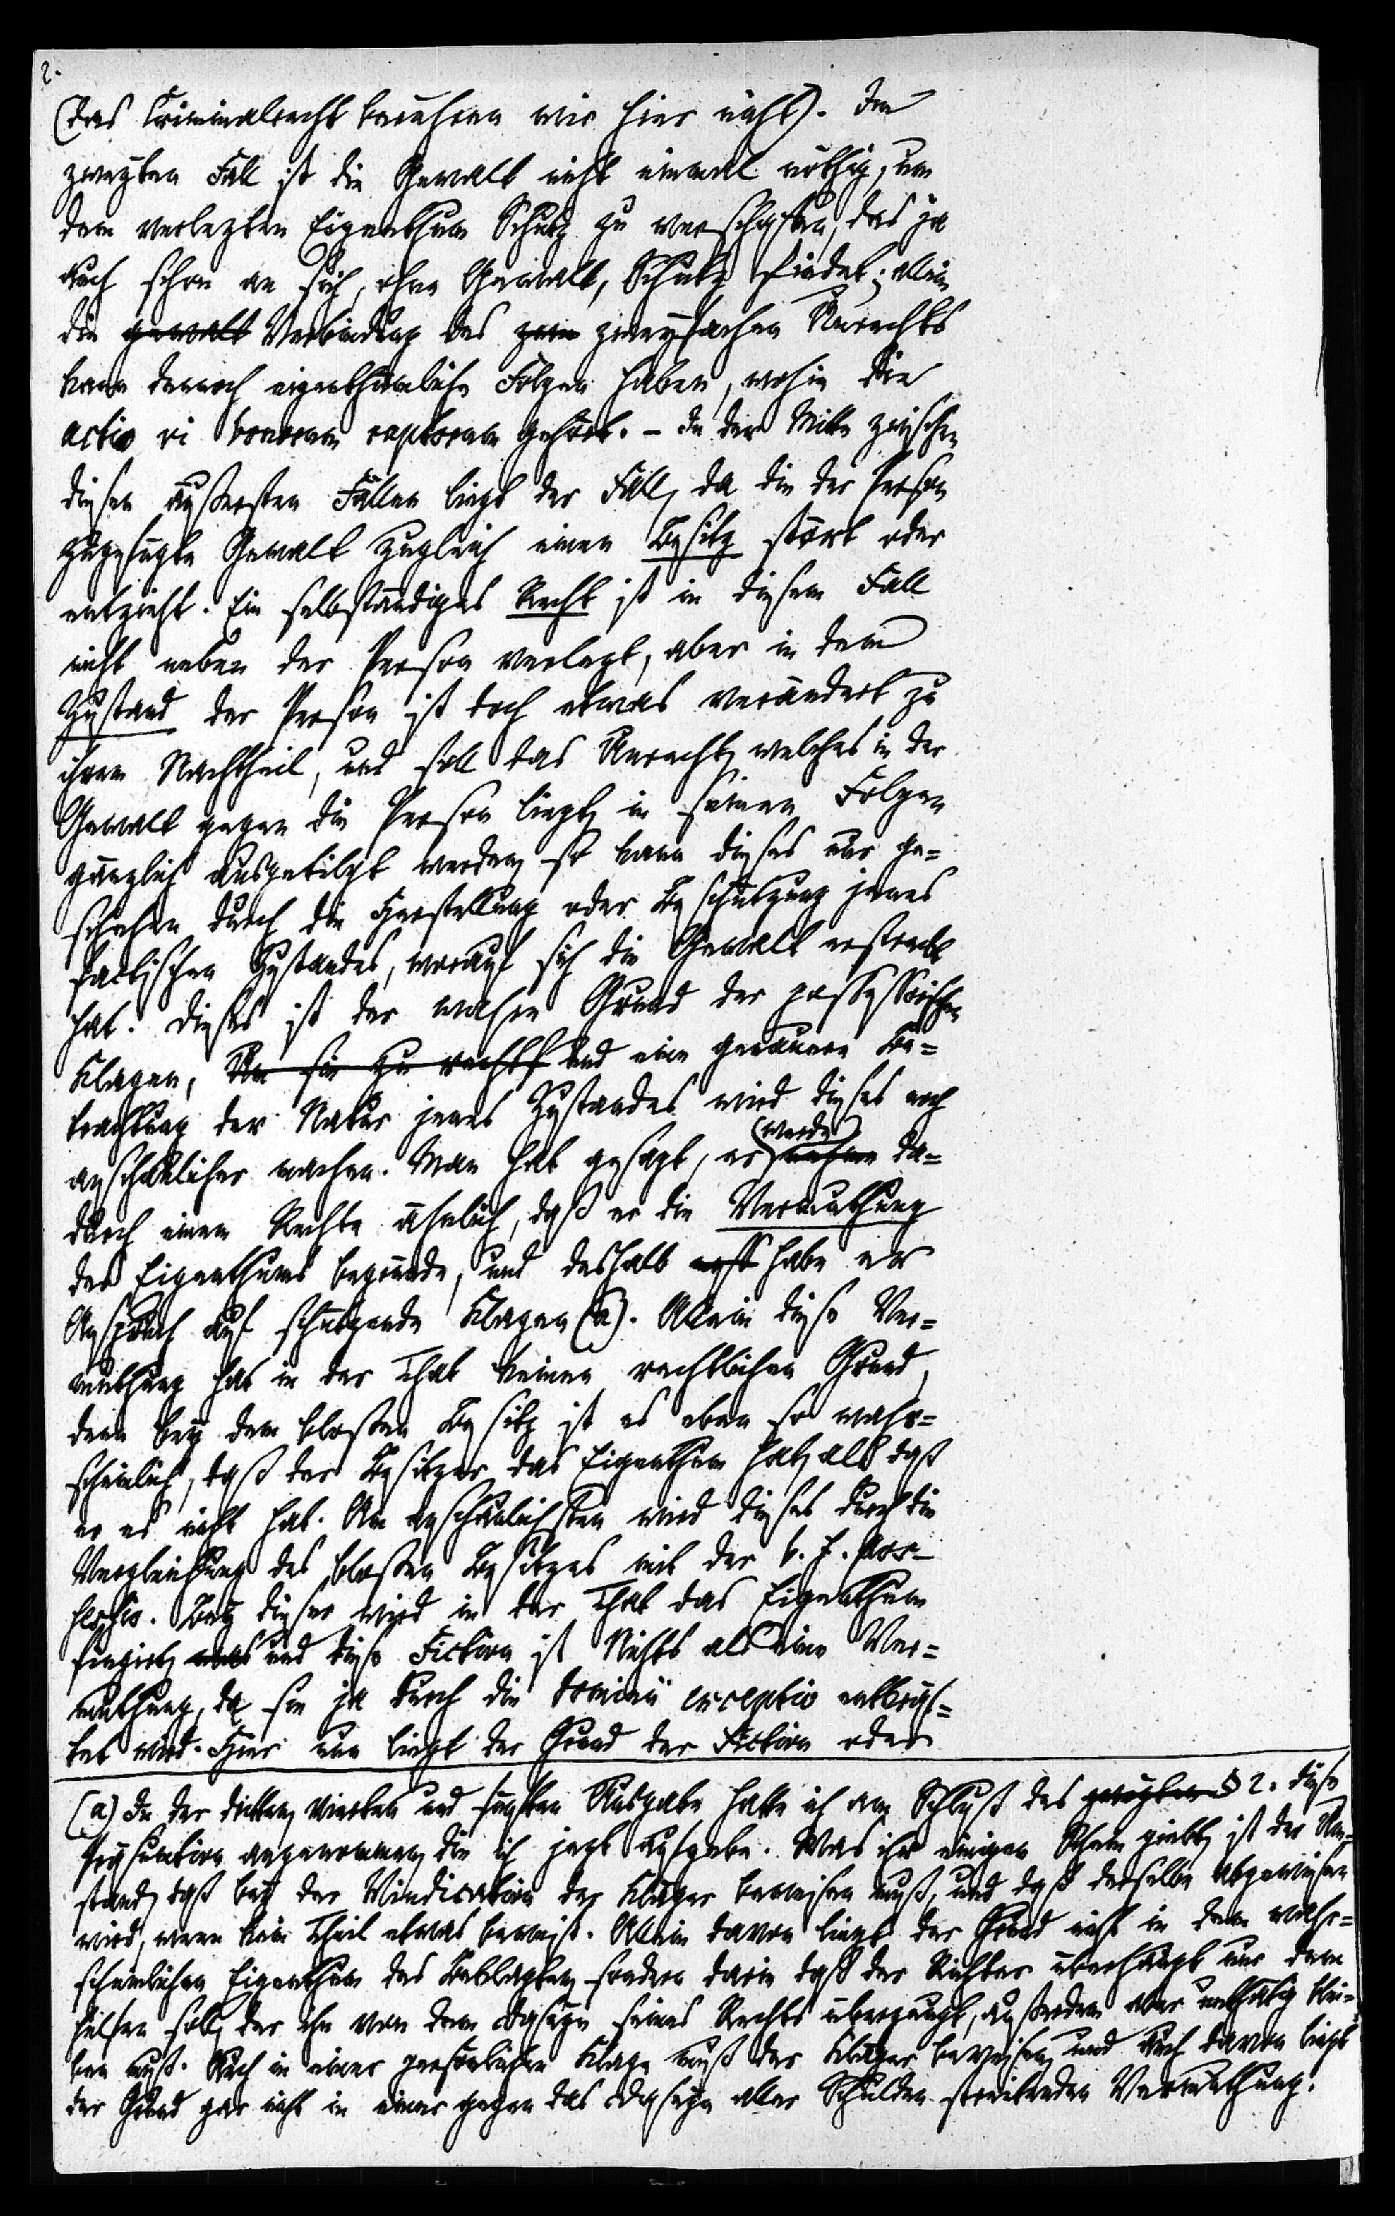 2.
(das Criminalrecht berühren wir hier nicht). Im
zweyten Fall ist die Gewalt nicht einmal nöthig, um
dem verlezten Eigenthum Schutz zu verschaffen, das ja
auch schon an sich, ohne Gewalt, Schutz findet; allein
die gewalt Verbindung des zwie zweyfachen Unrechts
kann dennoch eigenthümliche Folgen haben, wohin die
actio vi bonorum raptorum gehört. – In der Mitte zwischen
diesen äußersten Fällen liegt der Fall, da die der Person
zugefügte Gewalt zugleich einen Besitz stört oder
entzieht. Ein selbständiges Recht ist in diesem Fall
nicht neben der Person verlezt, aber in dem
Zustand der Person ist doch etwas verändert zu
ihrem Nachtheil, und soll das Unrecht, welches in der
Gewalt gegen die Person liegt, in seinen Folgen
gänzlich ausgetilgt werden, so kann dieses nur ge=
schehen durch die Herstellung oder Beschützung jenes
factischen Zustandes, worauf sich die Gewalt erstreckt
hat. Dieses ist der wahre Grund der possessorischen
Klagen, Um sie zu rechtf und eine genauere Be=
trachtung der Natur jenes Zustandes wird dieses noch
anschaulicher machen. Man hat gesagt, er (werde) nehme da=
durch einem Rechte ähnlich, daß er die Vermuthung
des Eigenthums begründe, und deshalb habe er
Anspruch auf schützende Klagen (a). Allein diese Ver=
muthung hat in der That keinen rechtlichen Grund,
denn bey dem bloßen Besitz ist es eben so wahr=
scheinlich, daß der Besitzer das Eigenthum hat, als daß
er es nicht hat. Am anschaulichsten wird dieses durch die
Vergleichung des bloßen Besitzes mit der b. f. pos-
sessio. Bey dieser wird in der That das Eigenthum
fingirt, und diese Fiction ist Nichts als eine Ver=
muthung, da sie ja durch die dominii exceptio entkräf=
tet wird. Hier nun liegt der Grund der Fiction oder
(a) In der dritten, vierten und fünften Ausgabe hatte ich am Schluß des zweyten § 2. diese
Präsumtion angenommen, die ich jezt aufgebe. Was ihr einigen Schein giebt, ist der Um=
stand, daß bey der Vindication der Kläger beweisen muß, und daß derselbe abgewiesen
wird, wenn kein Theil etwas beweist. Allein davon liegt der Grund nicht in dem wahr=
scheinlichen Eigenthum des Beklagten, sondern darin daß der Richter überhaupt nur dem
helfen soll, der ihn von dem Daseyn seines Rechts überzeugt, außerdem aber unthätig blei=
ben muß. Auch in einer persönlichen Klage muß der Kläger beweisen, und auch davon liegt
der Grund gar nicht in einer gegen das Daseyn aller Schulden streitenden Vermuthung.